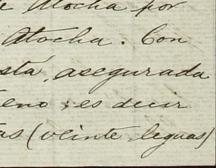 de Atocha por
Atocha. Con
sta, asegurada
eno, es decir
as (veinte leguas)